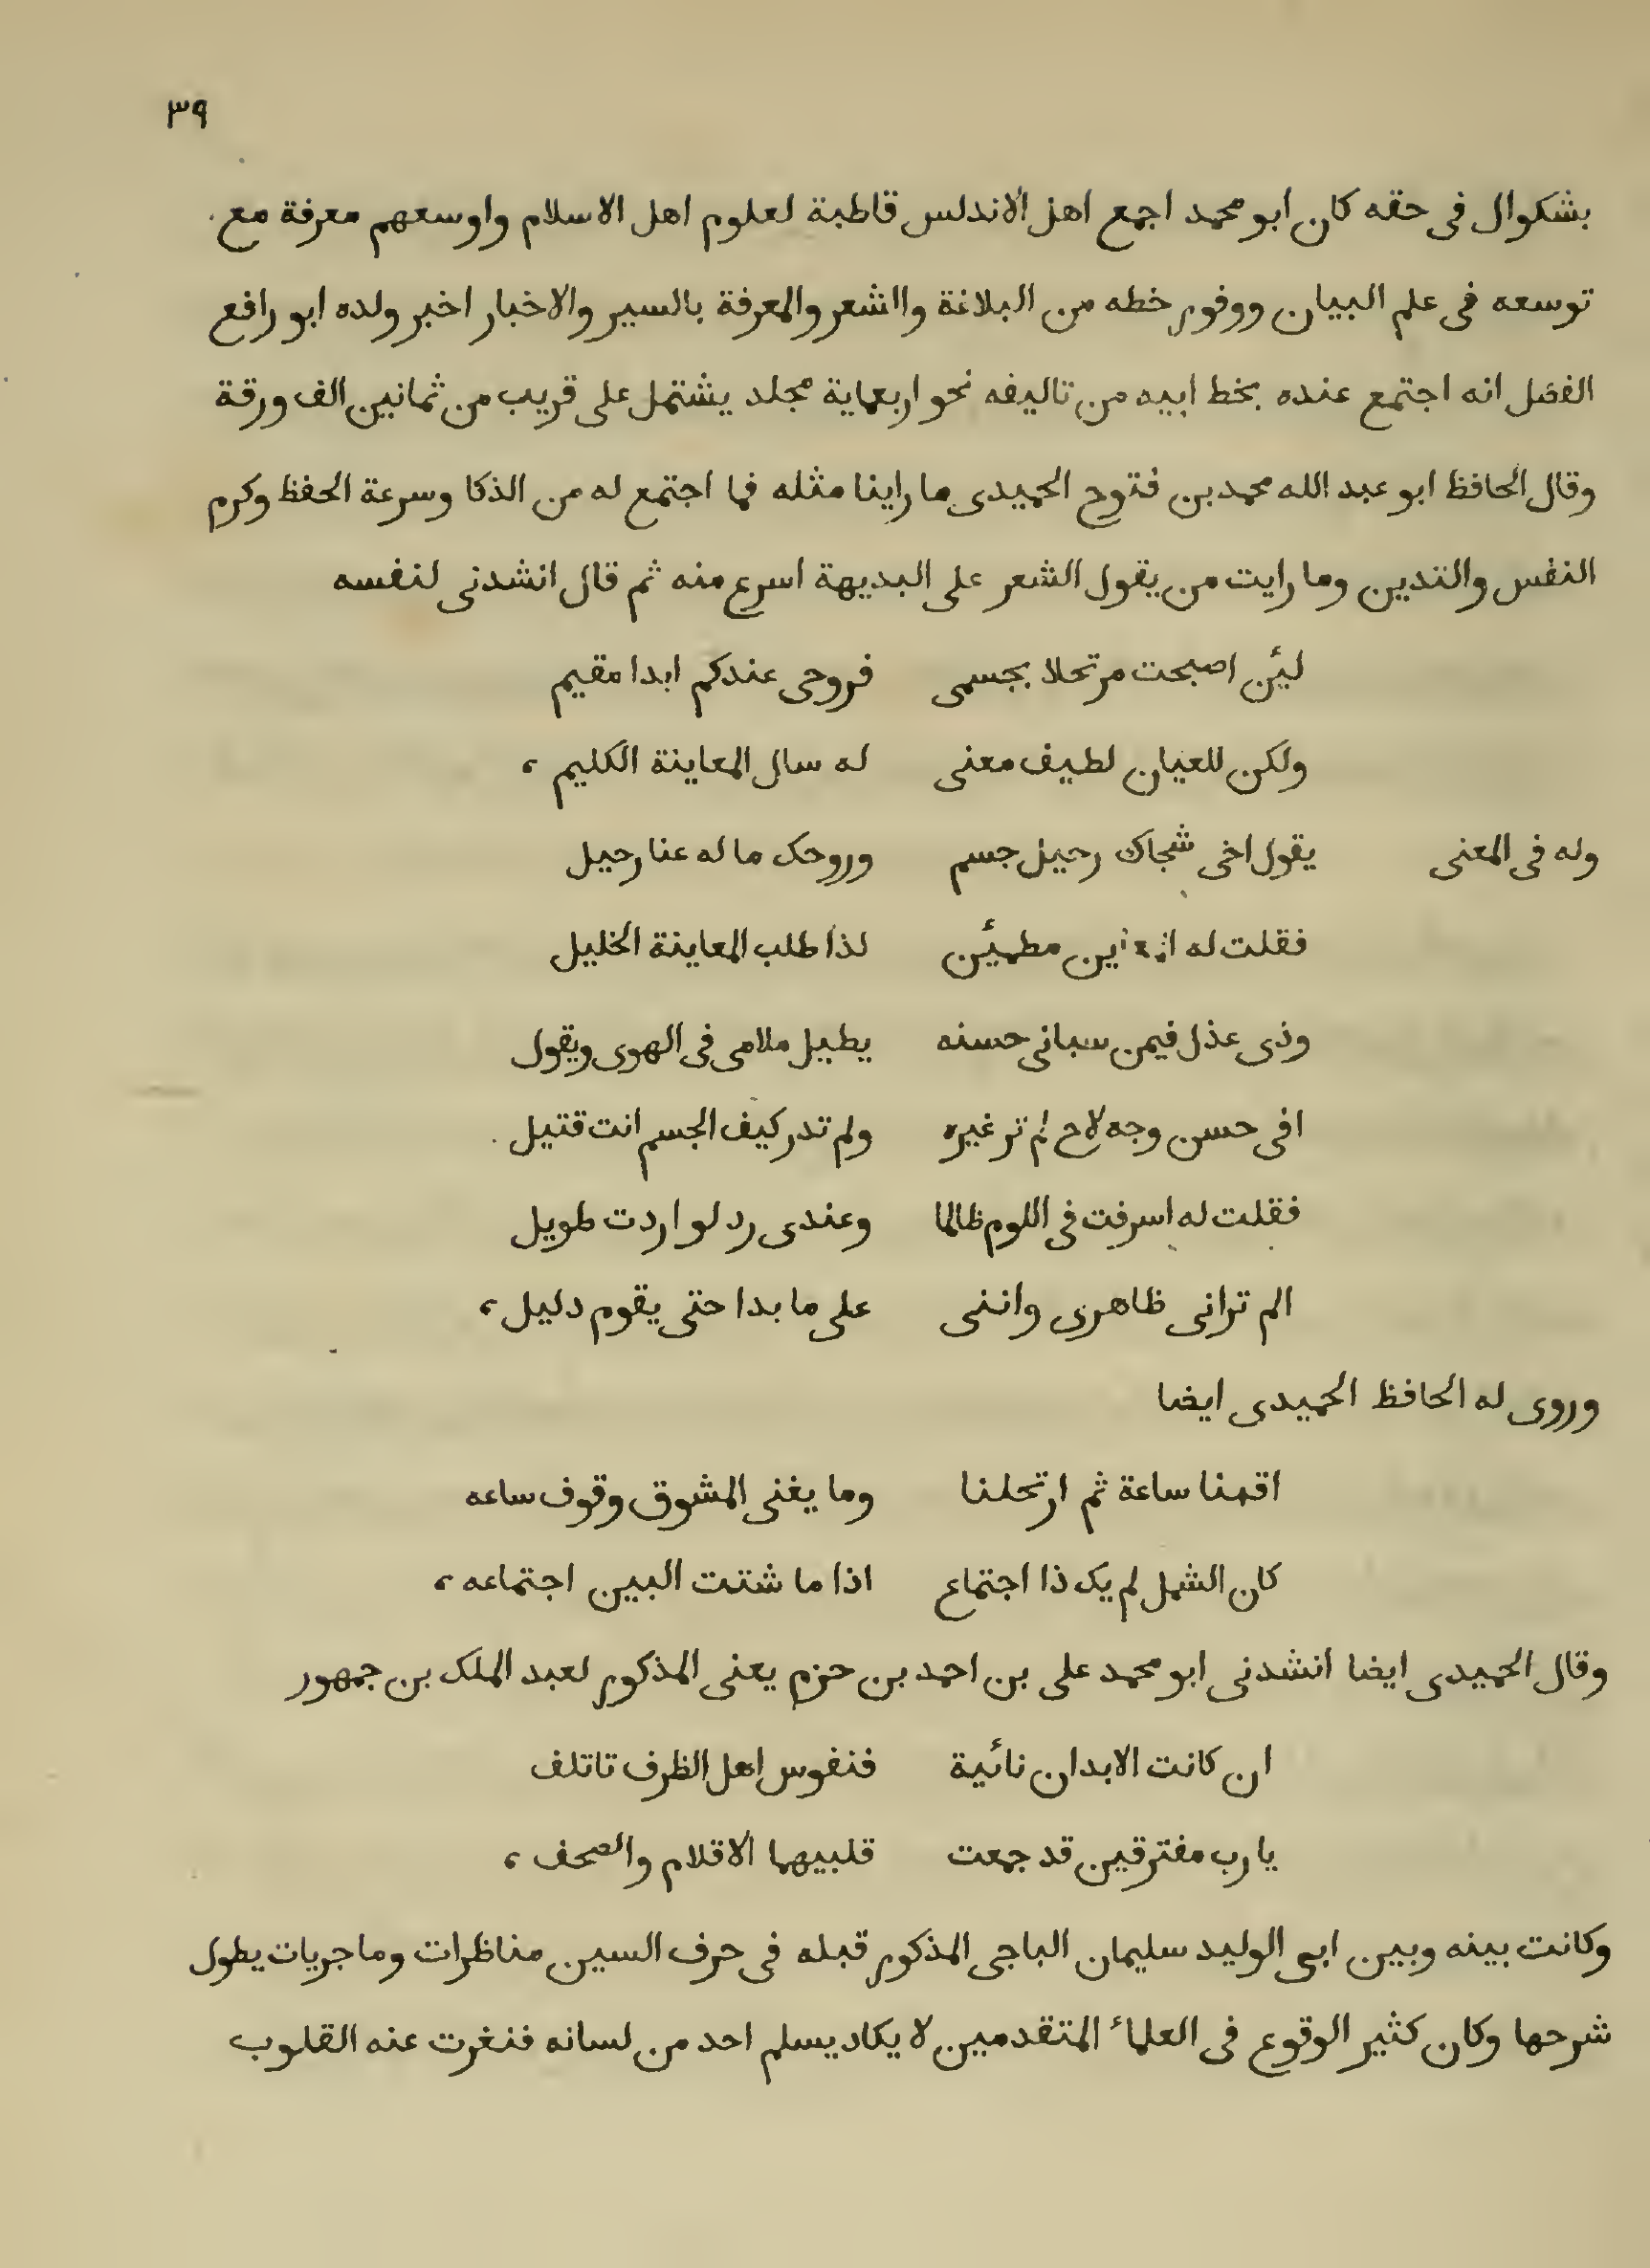 ٣٩
بشكوال فى حقه كان ابو محمد اجمع اهل الاندلس قاطبة لعلوم اهل الاسلام واوسعهم معرفة مع
توسعه فى علم البيان ووفور خطه من البلاغة واالشعر والمعرفة بالسير والاخبار اخبر ولده ابو رافع
الفضل انه اجتمع عنده بخط ابيه من تاليفه نحو اربعماية مجلد يشتمل على قريب من ثمانين الف ورقة
وقال الحافظ ابو عبد الله محمد بن فتوح الحميدى ما راينا مثله فما اجتمع له من الذكا وسرعة الحفظ وكرم
النفس والتدين وما رايت من يقول الشعر على البديهة اسرع منه ثم قال انشدنى لنفسه
لئن اصبحت مرتحلا بجسمى فروحى عندكم ابدا مقيم
ولكن للعيان لطيف معنى له سال المعاينة الكليم ،
وله فى المعنى يقول اخى شجاك رحيل جسم وروحك ما له عنا رحيل
فقلت له مطمئن لذا طلب المعاينة الخليل
وذى عذل فيمن سبانى حسنه يطيل ملامى فى الهوى ويقول
افى حسن وجه لاح لم تر غيره ولم تدر كيف الجسم انت قتيل
فقلت له اسرفت فى اللوم ظالما وعندى رد لو اردت طويل
الم ترانى ظاهرى واننى على ما بدا حتى يقوم دليل ،
وروى له الحافظ الحميدى ايضا
اقمنا ساعة ثم ارتحلنا وما يغنى المشوق وقوف ساعه
كان الشمل لم يك ذا اجتماع اذا ما شتت البين اجتماعه ،
وقال الحميدى ايضا انشدنى ابو محمد على بن احمد بن حزم يعنى المذكور لعبد الملك بن جمهور
ان كانت الابدان نائية فنفوس اهل الظرف تاتلف
يا رب مفترقين قد جمعت قلبيهما الاقلام والصحف ،
وكانت بينه وبين ابى الوليد سليمان الباجى المذكور قبله فى حرف السين مناظرات وماجريات يطول
شرحها وكان كثير الوقوع فى العلمأ المتقدمين لا يكاد يسلم احد من لسانه فنغرت عنه القلوب